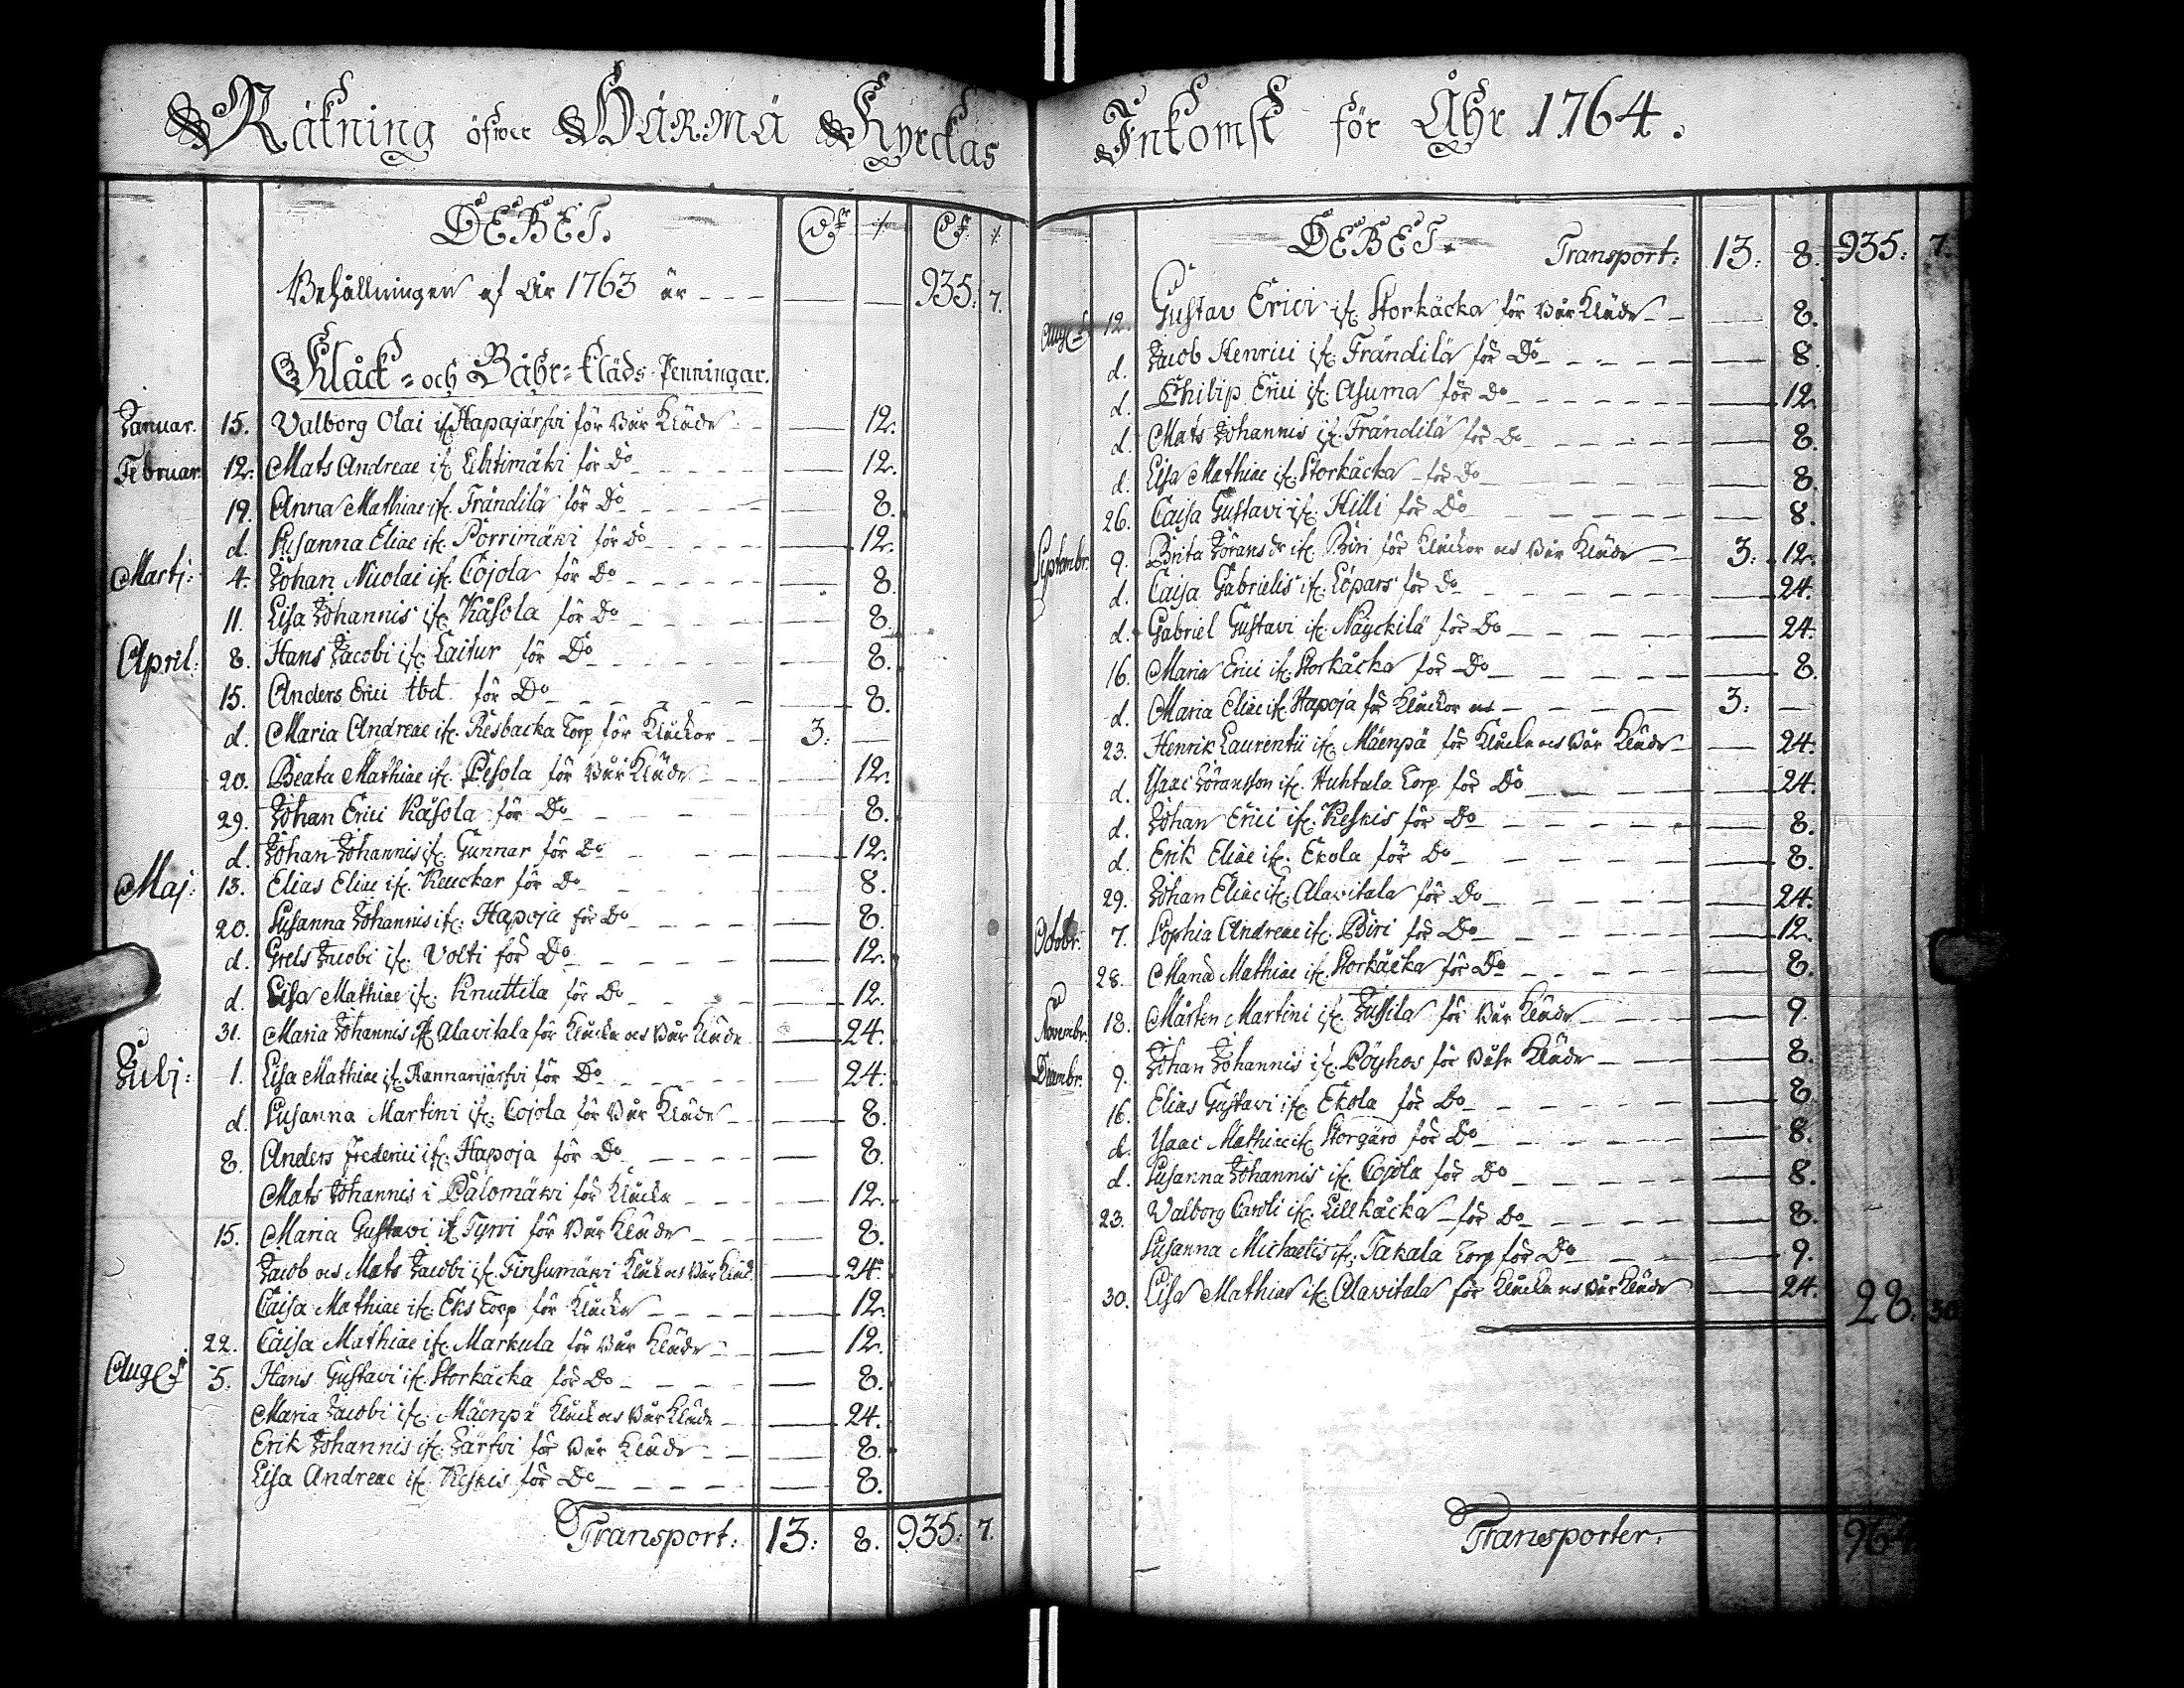 Räkning öfver Härmä Kyrckas
DEBET.
Behållningen af År 1763 är 935: 7.
Klåck- och Båhr-kläds-Penningar.
Januar. 15. Valborg Olai ifr. Hapajärfvi för Bår Kläde 12.
Februar. 12. Mats Andreae ifr. Lehtimäki för Do 12.
19. Anna Mathiae ifr. Frändilä för Do 8.
d. Susanna Eliae ifr. Porrimäki för Do 12.
Martj: 4. Johan Nicolai ifr. Cojola för Do 8.
11. Lisa Johannis ifr. Kåsola för Do 8.
April: 8. Hans Jacobi ifr. Laitur för Do 8.
15. Anders Erici ibd. för Do 8.
d. Maria Andreae ifr. Resbacka Torp för Klåckor 3:
20. Beata Mathiae ifr. Pesola för Bår Kläde 12.
29. Johan Erici Kåsola för Do 8.
d. Johan Johannis ifr. Gunnar för Do 12.
Maj: 13. Elias Eliae ifr. Keuckar för Do 8.
20. Susanna Johannis ifr. Hapoja för Do 8.
d. Grels Jacobi ifr. Volti för Do 12.
d. Lisa Mathiae ifr. Knuttila för Do 12.
31. Maria Johannis ifr. Alavitala för Klåcka och Bår Kläde 24.
Julij: 1. Lisa Mathiae ifr. Kannarijärfvi för Do 24.
d. Susanna Martini ifr. Cojola för Bår Kläde 8.
8. Anders Frederici ifr. Hapoja för Do 8.
Mats Johannis i Palomäki för Klåcka 12.
15. Maria Gustavi ifr. Tyrvi för Bår Kläde 8.
Jacob och Mats Jacobi ifr. Finsumäki Klåck och Bår Kläd. 24.
Caisa Mathiae ifr. Eks Torp för Klåcka 12.
22. Caisa Mathiae ifr. Markula för Bår Kläde 12.
Aug: 5. Hans Gustavi ifr. Storkåcka för Do 8.
Maria Jacobi ifr. Mäenpä Klåck och Bår Kläde 24.
Erik Johannis ifr. Järfvi för Bår Kläde 8.
Lisa Andreae ifr. Keskis för Do 8.
Transport: 13: 8. 935: 7.
Inkomst för Åhr 1764.
DEBET. Transport: 13: 8. 935: 7.
Aug: 12. Gustav Erici ifr. Storkåcka för Bår Kläde 8.
d. Jacob Henrici ifr. Frändilä för Do 8.
d. Philip Erici ifr. Asuma för Do 12.
d. Mats Johannis ifr. Frändilä för Do 8.
d. Lisa Mathiae ifr. Storkåcka för Do 8.
26. Caisa Gustavi ifr. Hilli för Do 8.
Septembr: 9. Brita Jöransdr ifr. Biri för Klåckor och Bår Kläde 3: 12.
d. Caisa Gabrielis ifr. Löpars för Do 24.
d. Gabriel Gustavi ifr. Näyckilä för Do 24.
16. Maria Erici ifr. Storkåcka för Do 8.
d. Maria Eliae ifr. Hapoja för Klåckor 3:
23. Henrik Laurentii ifr. Mäenpä för Klåcka och Bår Kläde 24.
d. Isaac Jöransson ifr. Huhtala Torp för Do 24.
d. Johan Erici ifr. Keskis för Do 8.
d. Erik Eliae ifr. Ekola för Do 8.
29. Johan Eliae ifr. Alavitala för Do 24.
Octobr: 7. Sophia Andreae ifr. Biri för Do 12.
28. Maria Mathiae ifr. Storkåcka för Do 8.
Novembr: 18. Mårten Martini ifr. Jussila för Bår Kläde 9.
Decembr: 9. Johan Johannis ifr. Pöyhos för Båhr Kläde 8.
16. Elias Gustavi ifr. Ekola för Do 8.
d. Isaac Mathiae ifr. Storgård för Do 8.
d. Susanna Johannis ifr. Cojola för Do 8.
23. Valborg Caroli ifr. Lillkåcka för Do 8.
Susanna Michaelis ifr. Takala Torp för Do 9.
30. Lisa Mathiae ifr. Alavitala för Klåcka och Bår Kläde 24. 28. 30
Transporter. 964